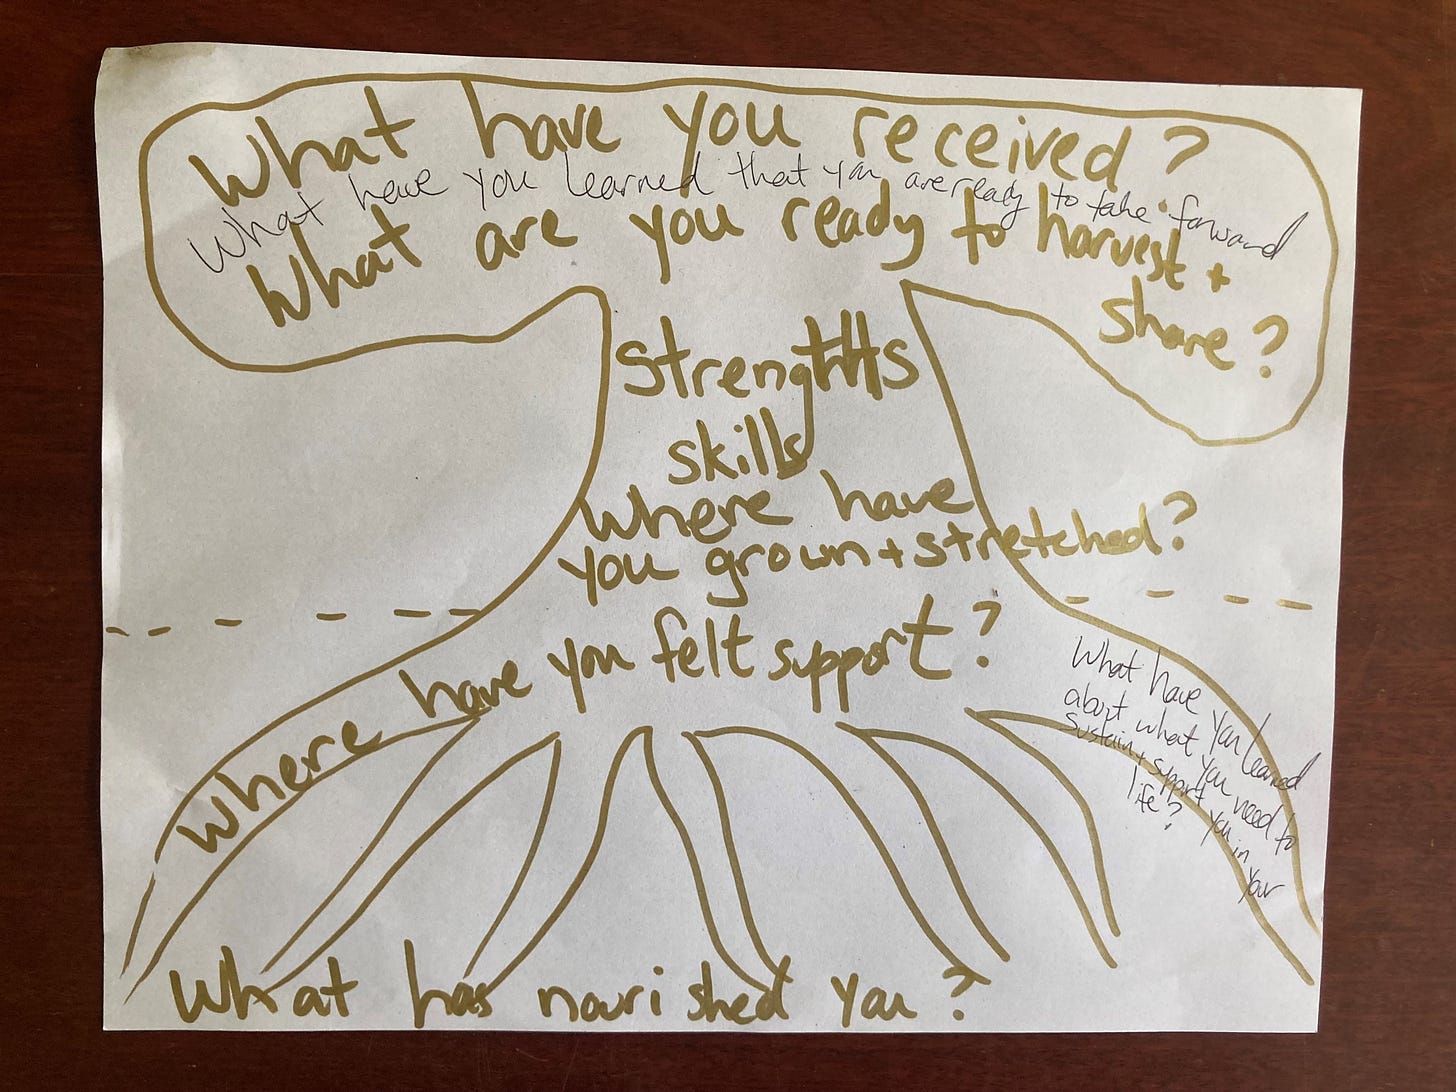 What have you received?
What have you learned that you are ready to take forward
What are you ready to harvest +
share?
Strenghths
skills
Where have
you grown + stretched?
Where have you felt support?
What have you learned
about what you need to
sustain + support you in your
life?
What has nourished you?